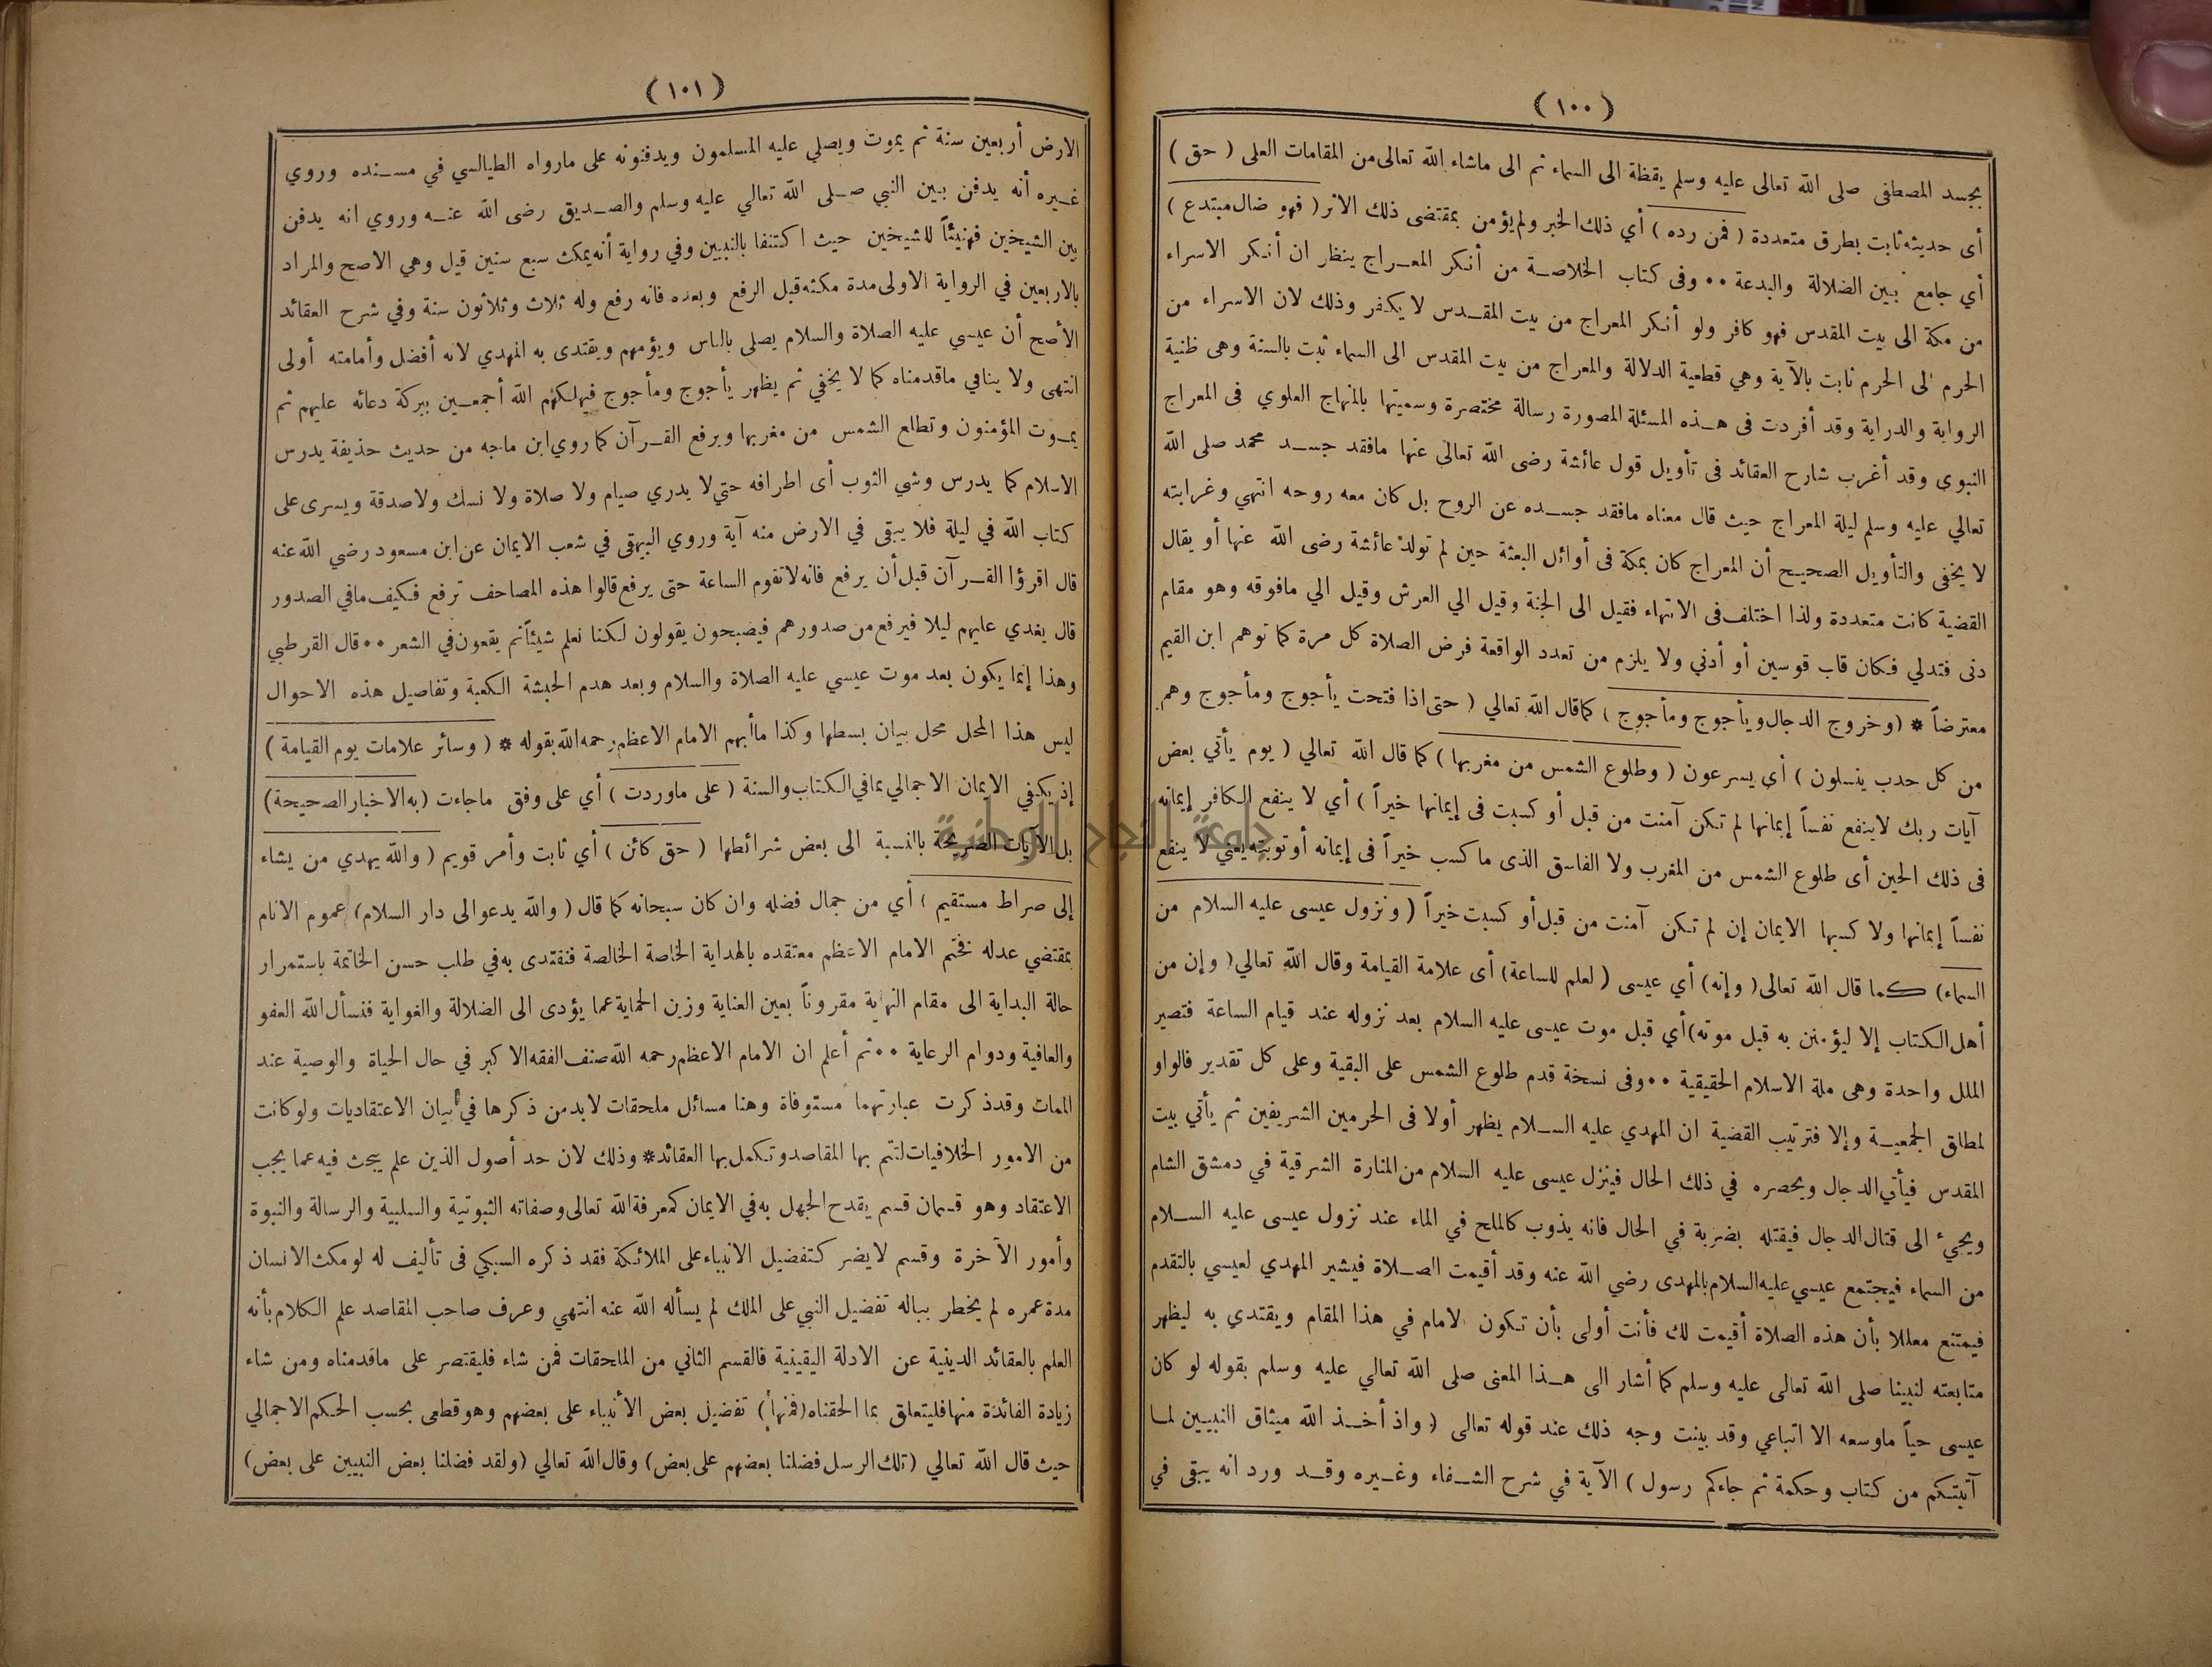 (١٠٠)
بجسد المصطفى صلى الله تعالى عليه وسلم يقظة الى السماء ثم الى ماشاء الله تعالى من المقامات العلى ( حق )
أى حديثه ثابت بطرق متعددة ( فمن رده ) أي ذلك الخبر ولم يؤمن بمقتضى ذلك الاثر ( فهو ضال مبتدع )
أي جامع بين الضلالة والبدعة ٠٠ وفى كتاب الخلاصة من أنكر المعراج ينظر ان أنكر الاسراء
من مكة الى بيت المقدس فهو كافر ولو أنكر المعراج من بيت المقدس لا يكفر وذلك لان الاسراء من
الحرم الى الحرم ثابت بالآية وهي قطعية الدلالة والمعراج من بيت المقدس الى السماء ثبت بالسنة وهى ظنية
الرواية والدراية وقد أفردت فى هذه المسئلة المصورة رسالة مختصرة وسميتها بالمنهاج العلوي فى المعراج
النبوى وقد أغرب شارح العقائد فى تأويل قول عائشة رضى الله تعالى عنها مافقد جسد محمد صلى الله
تعالي عليه وسلم ليلة المعراج حيث قال معناه مافقد جسده عن الروح بل كان معه روحه انتهي وغرابته
لا يخفى والتأويل الصحيح أن المعراج كان بمكة فى أوائل البعثة حين لم تولد عائشة رضى الله عنها أو يقال
القضية كانت متعددة ولذا اختلف فى الانتهاء فقيل الى الجنة وقيل الي العرش وقيل الي مافوقه وهو مقام
دنى فتدلي فكان قاب قوسين أو أدني ولا يلزم من تعدد الواقعة فرض الصلاة كل مرة كما توهم ابن القيم
معترضاً * ( وخروج الدجال ويأجوج ومأجوج ) كما قال الله تعالي ( حتى اذا فتحت يأجوج ومأجوج وهم
من كل حدب ينسلون ) أي يسرعون ( وطلوع الشمس من مغربها ) كما قال الله تعالي ( يوم يأتي بعض
آيات ربك لاينفع نفساً إيمانها لم تكن آمنت من قبل أو كسبت فى إيمانها خيراً ) أي لا ينفع الكافر إيمانه
فى ذلك الحين أى طلوع الشمس من المغرب ولا الفاسق الذى ما كسب خيراً فى إيمانه أو توبته يعني لا ينفع
نفساً إيمانها ولا كسبها الايمان إن لم تكن آمنت من قبل أو كسبت خيراً ( ونزول عيسى عليه السلام من
السماء) كما قال الله تعالى ( وإنه) أي عيسى ( لعلم للساعة) أى علامة القيامة وقال الله تعالي ( وإن من
أهل الكتاب إلا ليؤمنن به قبل موته ) أي قبل موت عيسى عليه السلام بعد نزوله عند قيام الساعة فتصير
الملل واحدة وهى ملة الاسلام الحقيقية ٠٠ وفى نسخة قدم طلوع الشمس على البقية وعلى كل تقدير فالواو
لمطلق الجمعية وإلا فترتيب القضية ان المهدي عليه السلام يظهر أولا فى الحرمين الشريفين ثم يأتي بيت
المقدس فيأتي الدجال ويحصره في ذلك الحال فينزل عيسى عليه السلام من المنارة الشرقية في دمشق الشام
ويجيء الى قتال الدجال فيقتله بضربة في الحال فانه يذوب كالملح في الماء عند نزول عيسى عليه السلام
من السماء فيجتمع عيسي عليه السلام بالمهدى رضي الله عنه وقد أقيمت الصلاة فيشير المهدي لعيسي بالتقدم
فيمتنع معللا بأن هذه الصلاة أقيمت لك فأنت أولى بأن تكون الامام في هذا المقام ويقتدي به ليظهر
متابعته لنبينا صلى الله تعالى عليه وسلم كما أشار الى هذا المعنى صلى الله تعالي عليه وسلم بقوله لو كان
عيسى حياً ماوسعه الا اتباعي وقد بينت وجه ذلك عند قوله تعالى ( واذ أخذ الله ميثاق النبيين لما
آتيتكم من كتاب وحكمة ثم جاءكم رسول ) الآية في شرح الشفاء وغيره وقد ورد انه يبقى في
(١٠١)
الارض أربعين سنة ثم يموت ويصلي عليه المسلمون ويدفنونه على مارواه الطيالسي في مسنده وروي
غيره أنه يدفن بين النبي صلى الله تعالي عليه وسلم والصديق رضى الله عنه وروي انه يدفن
بين الشيخين فهنيئاً للشيخين حيث اكتنفا بالنبيين وفي رواية أنه يمكث سبع سنين قيل وهي الاصح والمراد
بالاربعين في الرواية الاولى مدة مكثه قبل الرفع وبعده فانه رفع وله ثلاث وثلاثون سنة وفي شرح العقائد
الأصح أن عيسي عليه الصلاة والسلام يصلى بالناس ويؤمهم ويقتدى به المهدي لانه أفضل وأمامته أولى
انتهى ولا ينافي ماقدمناه كما لا يخفي ثم يظهر يأجوج ومأجوج فيهلكهم الله أجمعين ببركة دعائه عليهم ثم
يموت المؤمنون وتطلع الشمس من مغربها ويرفع القرآن كما روي ابن ماجه من حديث حذيفة يدرس
الاسلام كما يدرس وشي الثوب أى اطرافه حتي لا يدري صيام ولا صلاة ولا نسك ولا صدقة ويسرى على
كتاب الله في ليلة فلا يبقى في الارض منه آية وروي البيهقى في شعب الايمان عن ابن مسعود رضي الله عنه
قال اقرؤا القرآن قبل أن يرفع فانه لا تقوم الساعة حتى يرفع قالوا هذه المصاحف ترفع فكيف مافي الصدور
قال يغدي عليهم ليلا فيرفع من صدورهم فيصبحون يقولون لكنا نعلم شيئاً ثم يقعون في الشعر ٠٠ قال القرطبي
وهذا إنما يكون بعد موت عيسي عليه الصلاة والسلام وبعد هدم الحبشة الكعبة وتفاصيل هذه الاحوال
ليس هذا المحل محل بيان بسطها وكذا ماأبهم الامام الاعظم رحمه الله بقوله * ( وسائر علامات يوم القيامة )
إذ يكفي الايمان الاجمالي بمافي الكتاب والسنة ( على ماوردت ) أي على وفق ماجاءت (به الاخبار الصحيحة)
بل الآيات الصريحة بالنسبة الى بعض شرائطها ( حق كائن ) أي ثابت وأمر قويم ( والله يهدي من يشاء
إلى صراط مستقيم ) أي من جمال فضله وان كان سبحانه كما قال ( والله يدعو الى دار السلام ) عموم الانام
بمقتضي عدله فختم الامام الاعظم معتقده بالهداية الخاصة الخالصة فنقتدى به في طلب حسن الخاتمة باستمرار
حالة البداية الى مقام النهاية مقروناً بعين العناية وزين الحماية عما يؤدى الى الضلالة والغواية فنسأل الله العفو
والعافية ودوام الرعاية ٠٠ ثم أعلم ان الامام الاعظم رحمه الله صنف الفقه الاكبر في حال الحياة والوصية عند
الممات وقد ذكرت عبارتهما مستوفاة وهنا مسائل ملحقات لابد من ذكرها في بيان الاعتقاديات ولو كانت
من الامور الخلافيات لتتم بها المقاصد وتكمل بها العقائد * وذلك لان حد أصول الذين علم يبحث فيه عما يجب
الاعتقاد وهو قسمان قسم يقدح الجهل به في الايمان كمعرفة الله تعالى وصفاته الثبوتية والسلبية والرسالة والنبوة
وأمور الآخرة وقسم لا يضر كتفضيل الانبياء على الملائكة فقد ذكره السبكي فى تأليف له لو مكث الانسان
مدة عمره لم يخطر بباله تفضيل النبي على الملك لم يسأله الله عنه انتهي وعرف صاحب المقاصد علم الكلام بأنه
العلم بالعقائد الدينية عن الادلة اليقينية فالقسم الثاني من الملحقات فمن شاء فليقتصر على ماقدمناه ومن شاء
زيادة الفائدة منها فليتعلق بما الحقناه (فمنها) تفضيل بعض الأنبياء على بعضهم وهو قطعى بحسب الحكم الاجمالي
حيث قال الله تعالي (تلك الرسل فضلنا بعضهم على بعض) وقال الله تعالي (ولقد فضلنا بعض النبيين على بعض)
جامعة النجاح الوطنية